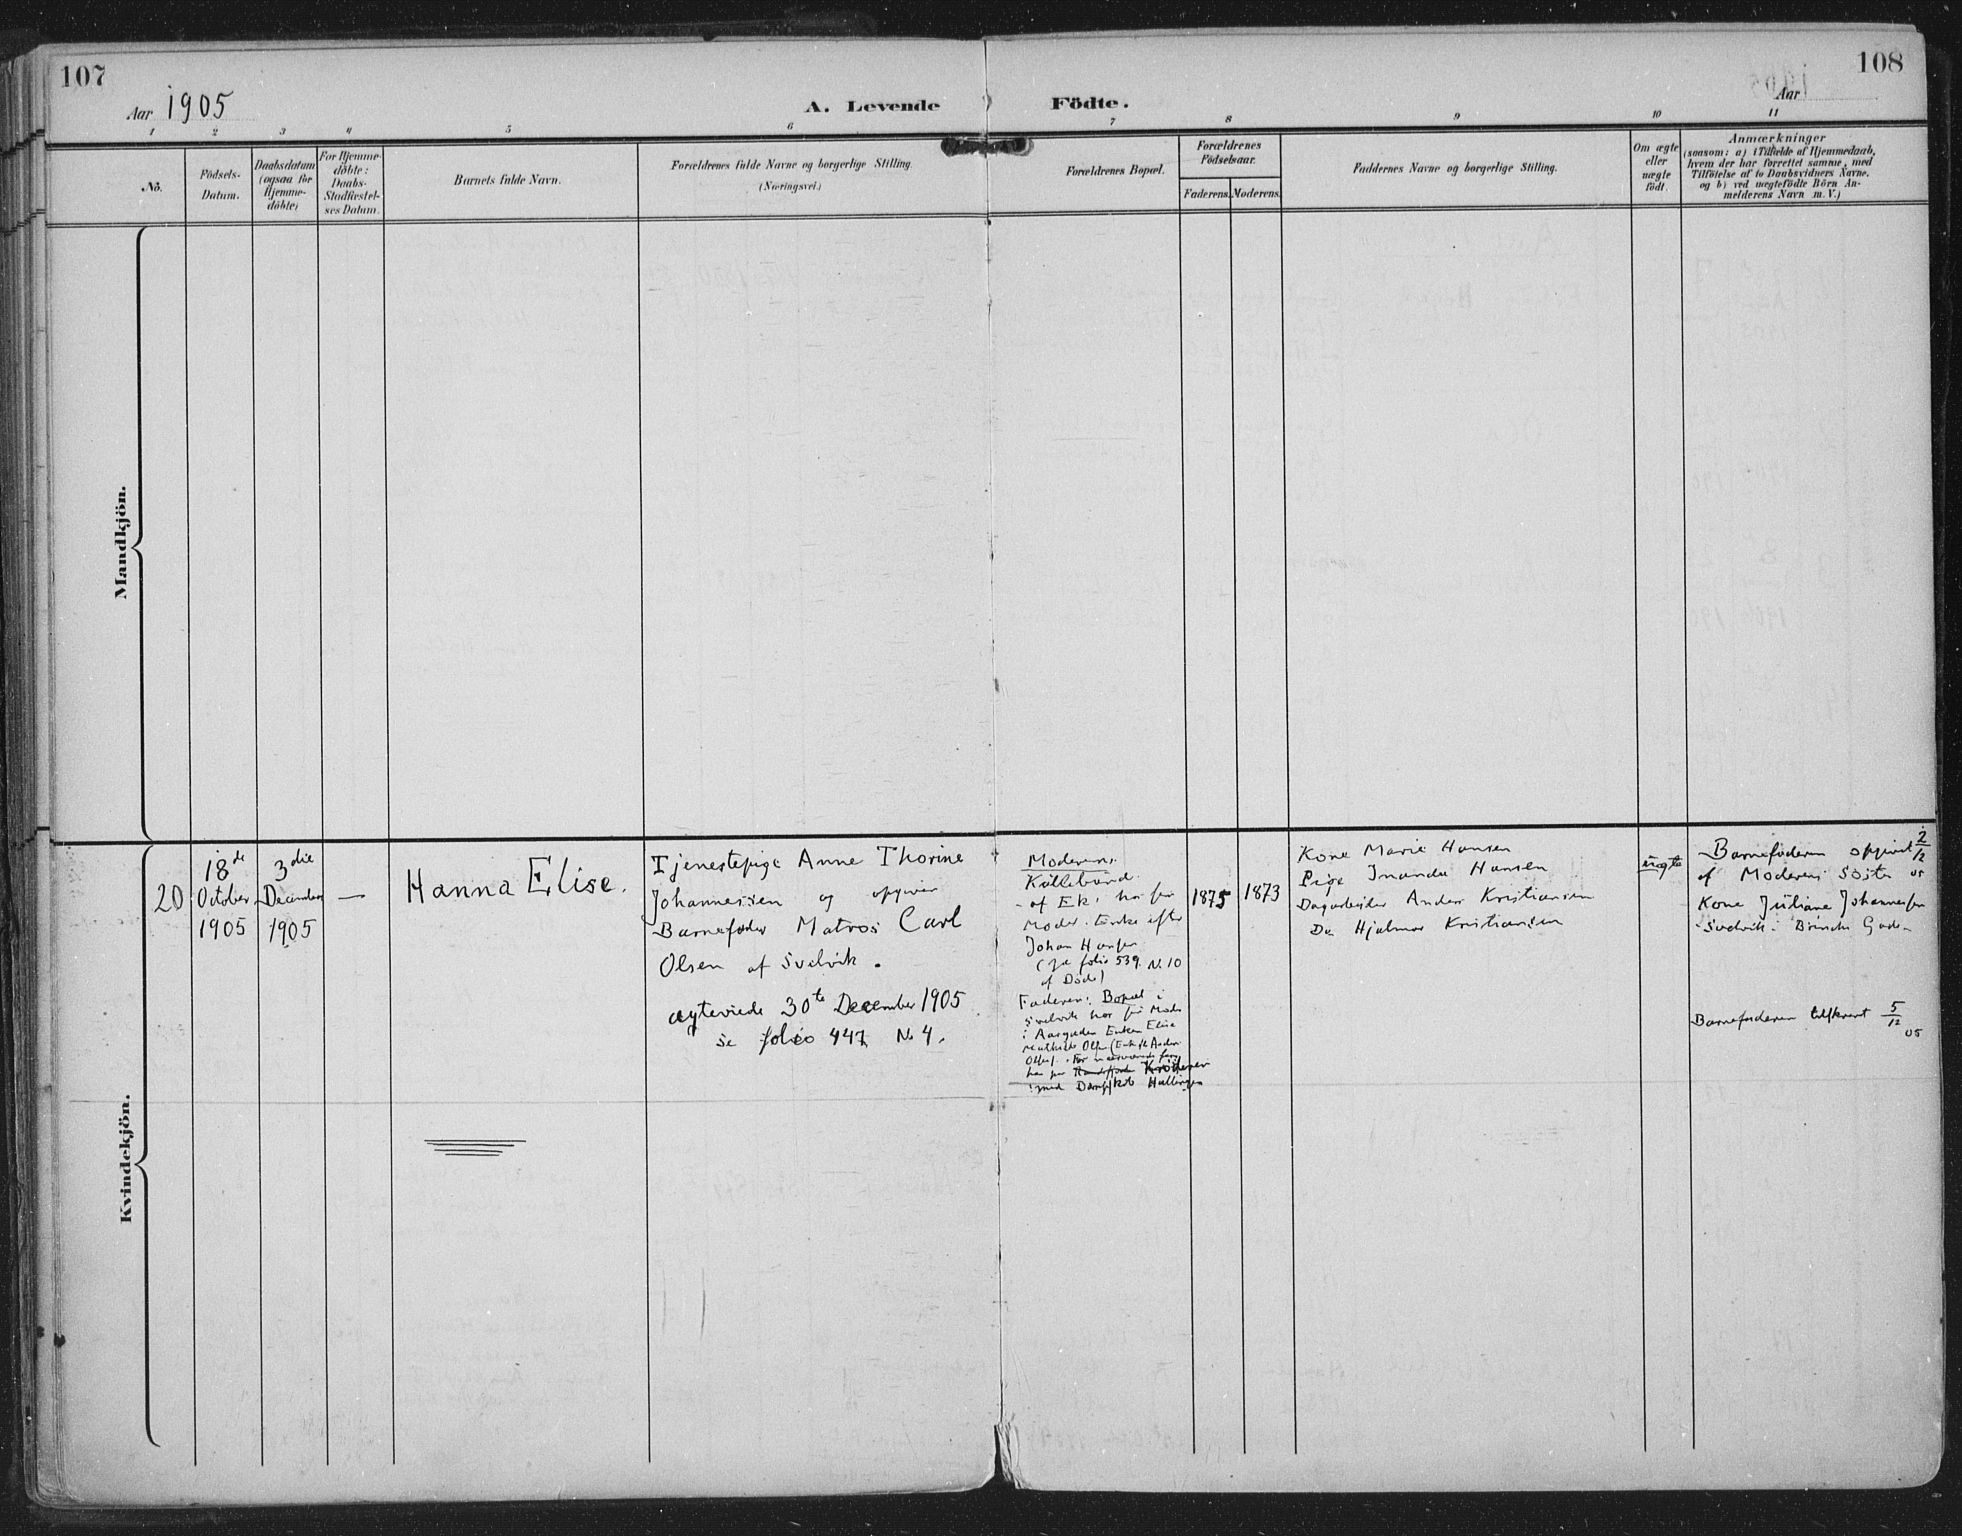 107
108
Aar 1905
A. Levende Födte.
Aar
1 2 3 4 5 6 7 8 9 10 11
No.
Födsels-
Datum.
Daabsdatum
(ogsaa för
Hjemme-
döbte)
For Hjemme-
döbte:
Daabs-
Stadfæstel-
ses Datum.
Barnets fulde Navn.
Forældrenes fulde Navne og borgerlige Stilling.
(Næringsvei.)
Forældrenes Bopæl.
Forældrenes
Födselsaar.
Faderens. Moderens.
Faddernes Navne og borgerlige Stilling.
Om ægte
eller
uægte
födt.
Anmærkninger
(saasom: a) i Tilfælde af Hjemmedaab,
hvem der har forrettet samme, med
Tilföielse af to Daabsvidners Navne,
og b) ved uægtefödte Börn An-
melderens Navn m. V.)
Mandkjön.
Kvindekjön.
20
18de
October
1905
3die
December
1905
—
Hanna Elise.
Tjenestepige Anne Thorine
Johannessen og opgiver
Barnefader Matros Carl
Olsen af Svelvik.
ægteviede 30te December 1905
se folio 447 No 4.
Moderens:
Kallebund.
af Ek, hos sin
Moder. Enke efter
Johan Hansen
(se folio 539. N. 10
af Døde)
Faderen: Bopæl i
Svelvik hos sin Moder
i Aasgaden Enken Elise
Olsen
med Dampskib Hallingen
1875
1873
Kone Marie Hansen
Pige Inanda Hansen
Dagarbeider Anders Kristiansen
Do Hjalmar Kristiansen
uægte
Barnefaderen opgivet 2/12 05
af Moderens Søster
Kone Juliane Johannessen
Svelvik.
Barnefaderen tilskrevet 5/12 05